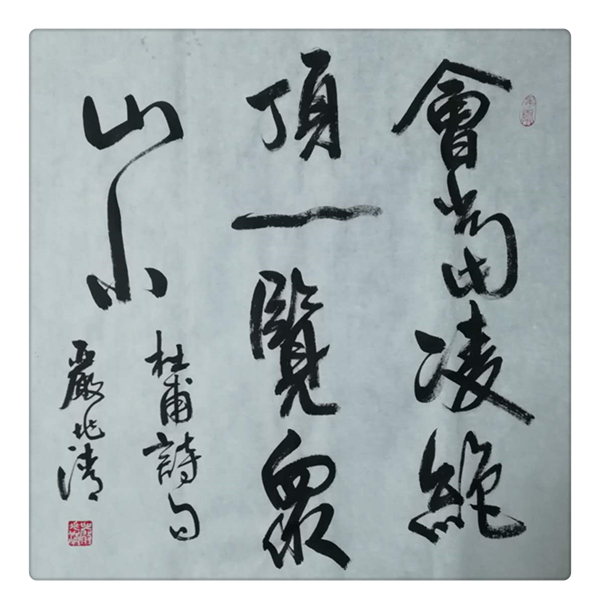 會當凌絕
頂一覽眾
山小
杜甫詩句
嚴兆清